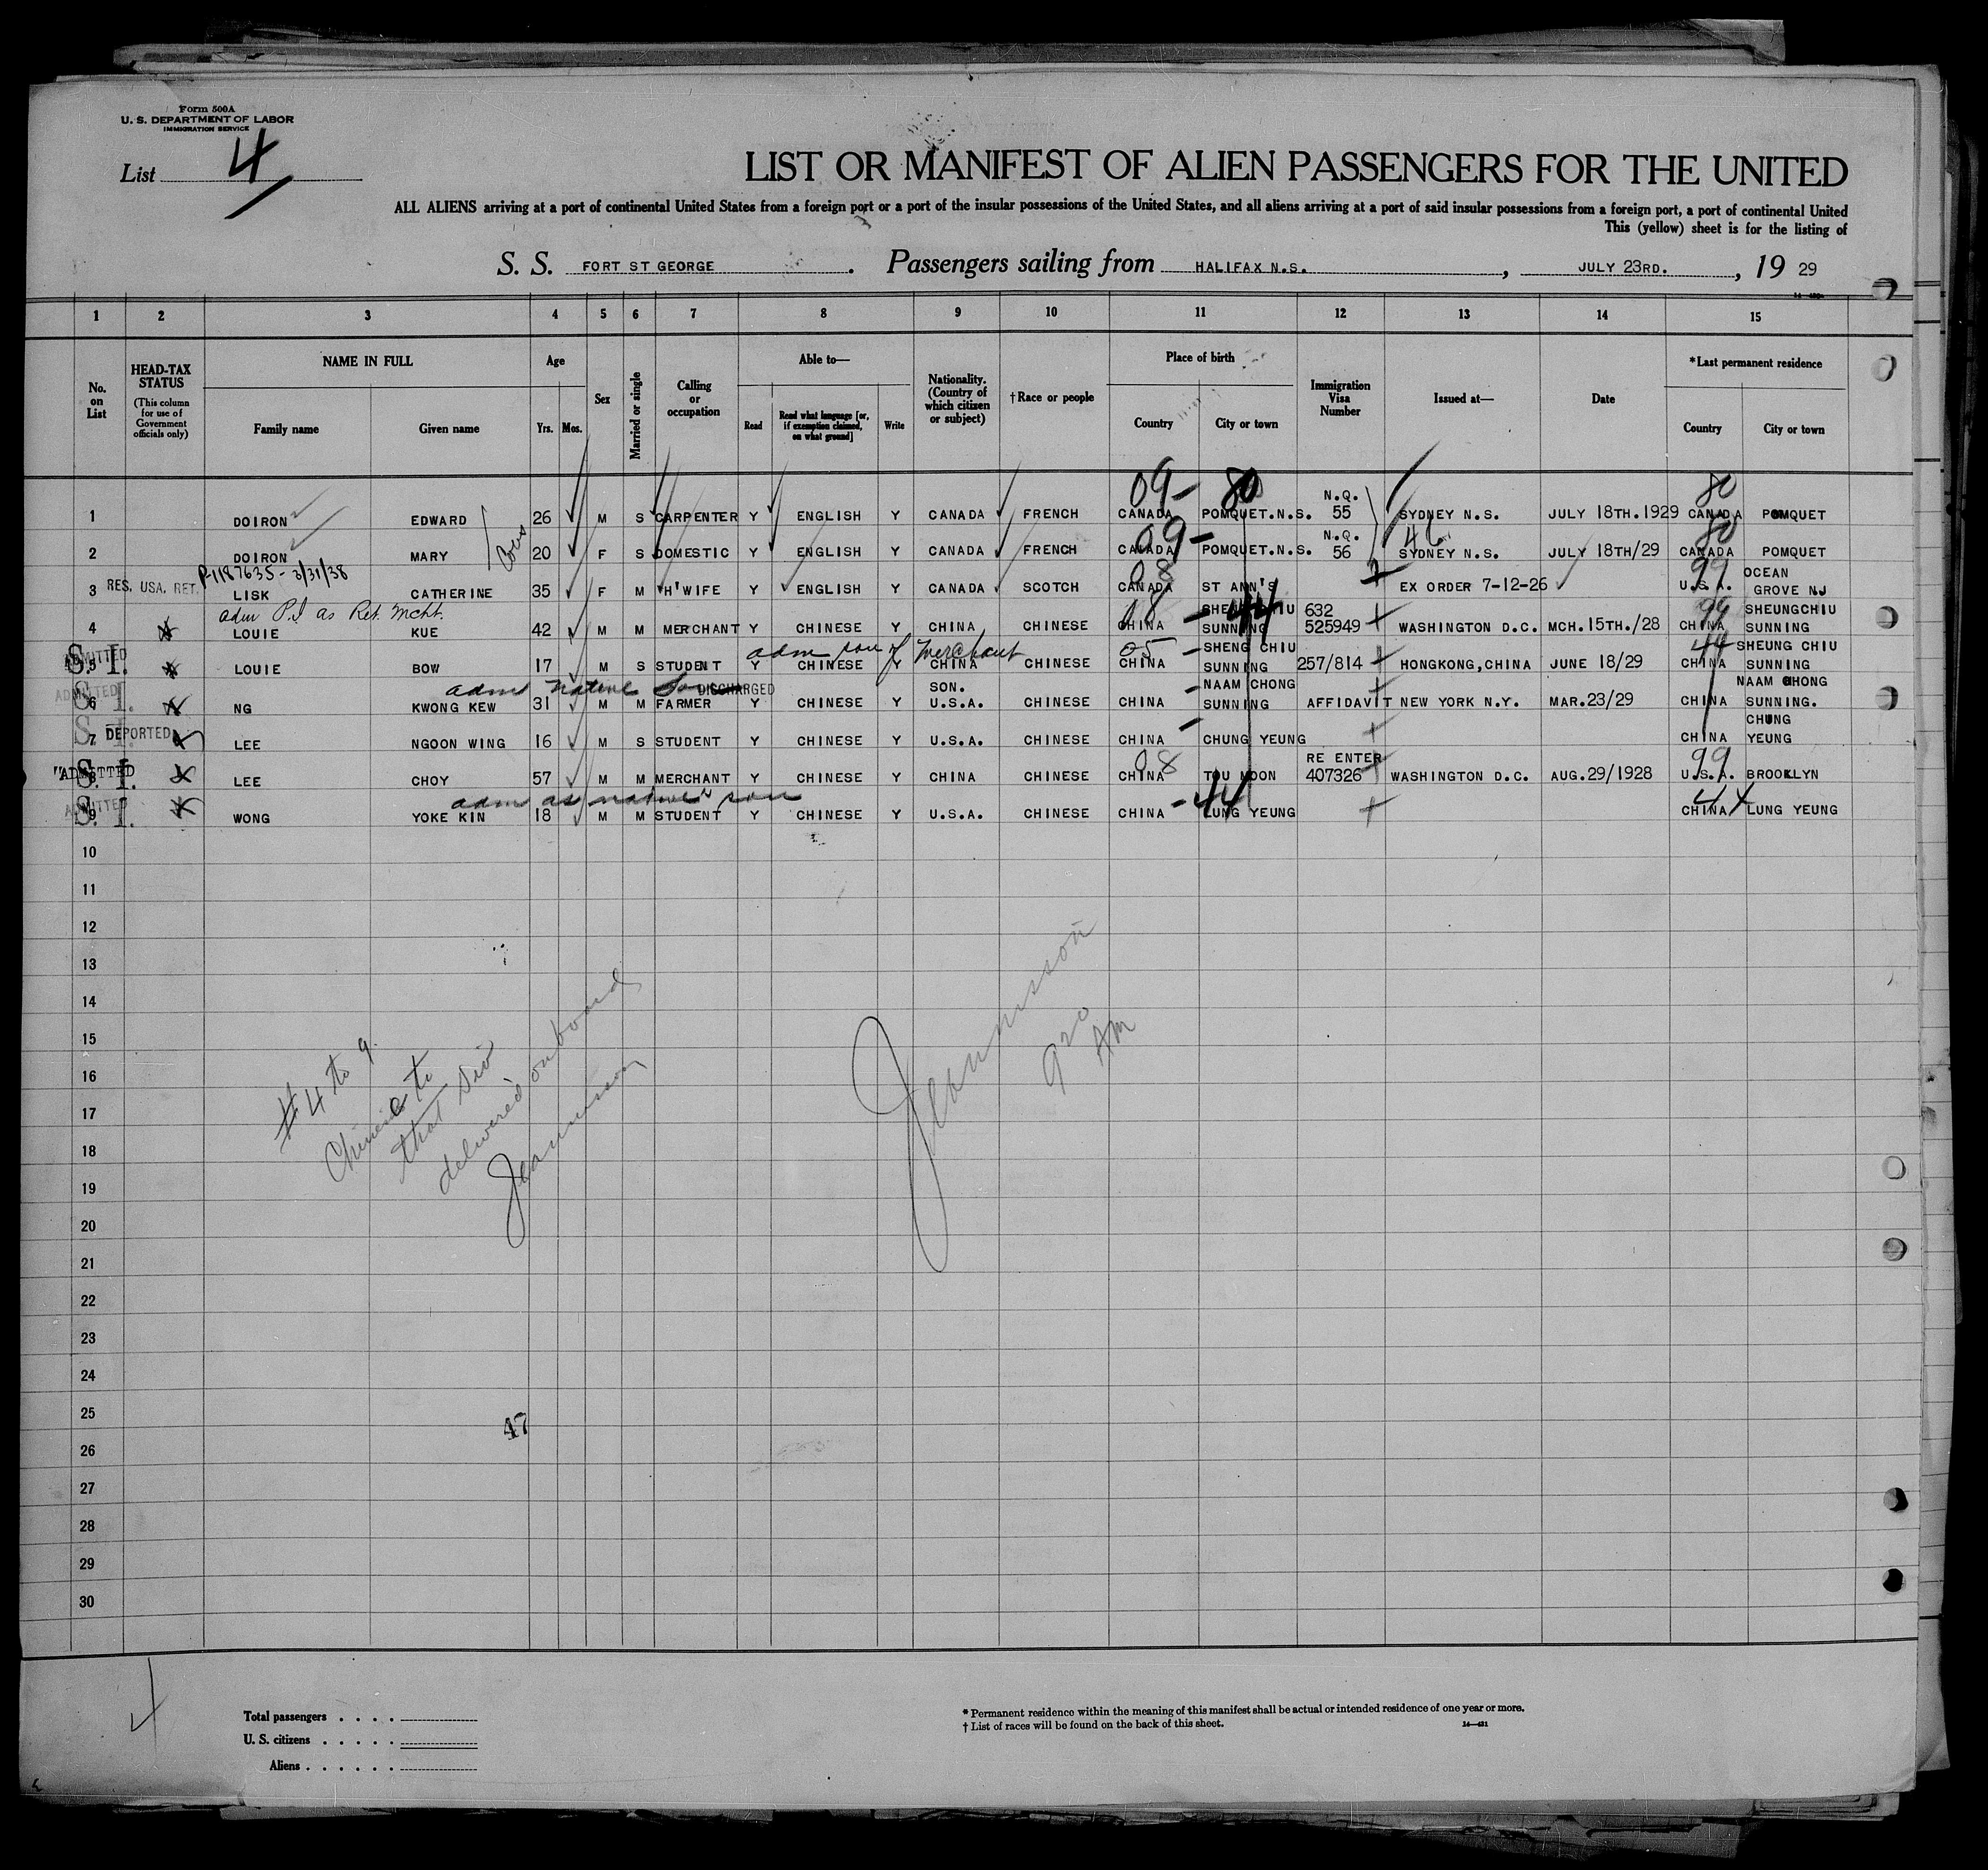 Form 500A
U. S. DEPARTMENT OF LABOR
IMMIGRATION SERVICE
List 4
LIST OR MANIFEST OF ALIEN PASSENGERS FOR THE UNITED
ALL ALIENS arriving at a port of continental United States from a foreign port or a port of the insular possessions of the United States, and all aliens arriving at a port of said insular possessions from a foreign port, a port of continental United
This (yellow) sheet is for the listing of
S. S. FORT ST GEORGE . Passengers sailing from HALIFAX N.S. , JULY 23RD. , 19 29
1 2 3 4 5 6 7 8 9 10 11 12 13 14 15
No. on List
HEAD-TAX STATUS (This column for use of Government officials only)
NAME IN FULL
Family name Given name
Age
Yrs. Mos.
Sex
Married or single
Calling or occupation
Able to—
Read Read what language [or, if exemption claimed, on what ground] Write
Nationality. (Country of which citizen or subject)
†Race or people
Place of birth
Country City or town
Immigration Visa Number
Issued at—
Date
*Last permanent residence
Country City or town
09- 80 N.Q. 80
1 DOIRON EDWARD 26 M S CARPENTER Y ENGLISH Y CANADA FRENCH CANADA POMQUET.N.S. 55 SYDNEY N.S. JULY 18TH.1929 CANADA POMQUET
09- N.Q. 46 80
2 DOIRON MARY 20 F S DOMESTIC Y ENGLISH Y CANADA FRENCH CANADA POMQUET.N.S. 56 SYDNEY N.S. JULY 18TH/29 CANADA POMQUET
P-1187635 - 3/31/38 08 99 OCEAN
3 RES. USA. RET. LISK CATHERINE 35 F M H'WIFE Y ENGLISH Y CANADA SCOTCH CANADA ST ANN'S EX ORDER 7-12-26 U.S.A. GROVE NJ
adm P.I as Ret. Mcht. 08 44 632 99 SHEUNGCHIU
4 LOUIE KUE 42 M M MERCHANT Y CHINESE Y CHINA CHINESE CHINA SUNNING 525949 WASHINGTON D.C. MCH.15TH./28 CHINA SUNNING
ADMITTED adm son of Merchant 05 SHENG CHIU 44 SHEUNG CHIU
S. I. 5 LOUIE BOW 17 M S STUDENT Y CHINESE Y CHINA CHINESE CHINA SUNNING 257/814 HONGKONG,CHINA JUNE 18/29 CHINA SUNNING
ADMITTED adm native Son DISCHARGED SON. NAAM CHONG NAAM CHONG
S. I. 6 NG KWONG KEW 31 M M FARMER Y CHINESE Y U.S.A. CHINESE CHINA SUNNING AFFIDAVIT NEW YORK N.Y. MAR.23/29 CHINA SUNNING.
DEPORTED CHUNG
S. I. 7 LEE NGOON WING 16 M S STUDENT Y CHINESE Y U.S.A. CHINESE CHINA CHUNG YEUNG CHINA YEUNG
ADMITTED 08 RE ENTER 99
S. I. 8 LEE CHOY 57 M M MERCHANT Y CHINESE Y CHINA CHINESE CHINA TOU MOON 407326 WASHINGTON D.C. AUG.29/1928 U.S.A. BROOKLYN
ADMITTED adm as native's son -44 44
S. I. 9 WONG YOKE KIN 18 M M STUDENT Y CHINESE Y U.S.A. CHINESE CHINA LUNG YEUNG CHINA LUNG YEUNG
10
11
12
13
14
15
16
17
18
19
20
21
22
23
24
25
26
27
28
29
30
#4 to 9
Chinese to
that Div
delivered on board
Jeannisson
Jeannisson
9 20
AM
47
Total passengers . . . .
U. S. citizens . . . . .
Aliens . . . . . .
* Permanent residence within the meaning of this manifest shall be actual or intended residence of one year or more.
† List of races will be found on the back of this sheet.
14—431